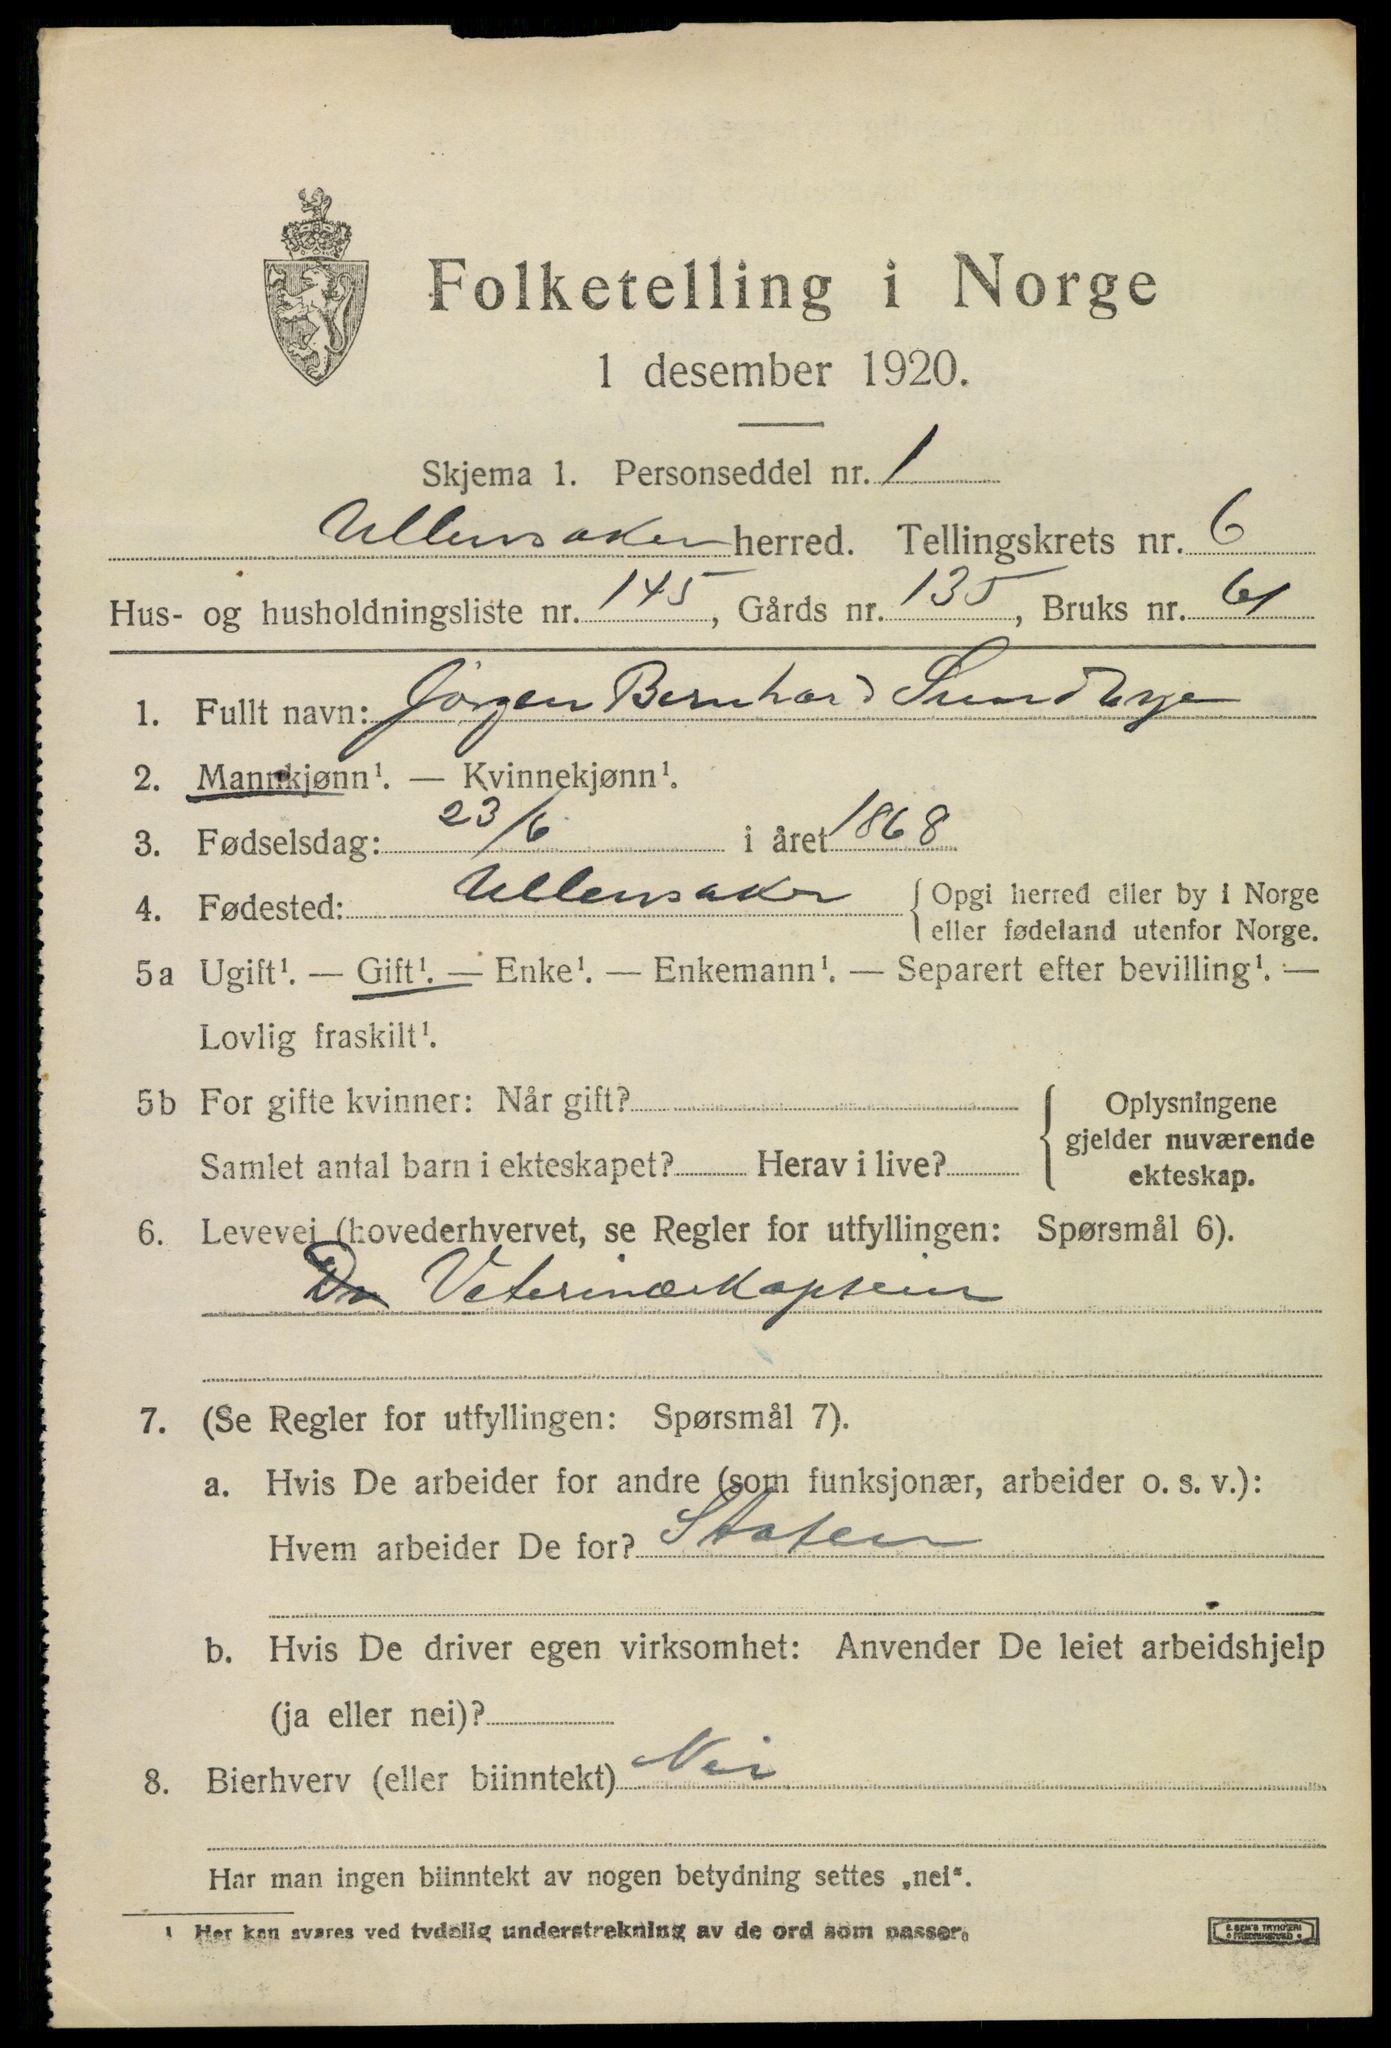 Folketelling i Norge
1 desember 1920.
Skjema 1. Personseddel nr. 1
Ullensaker herred. Tellingskrets nr. 6
Hus- og husholdningsliste nr. 145, Gårds nr. 135, Bruks nr. 61
1. Fullt navn: Jørgen Bernhard Sundbye
2. Mannkjønn¹. — Kvinnekjønn¹.
3. Fødselsdag: 23/6 i året 1868
4. Fødested: Ullensaker { Opgi herred eller by i Norge
eller fødeland utenfor Norge.
5a Ugift¹. — Gift¹. — Enke¹. — Enkemann¹. — Separert efter bevilling¹. —
Lovlig fraskilt¹.
5b For gifte kvinner: Når gift?
Samlet antal barn i ekteskapet? Herav i live?
{ Oplysningene
gjelder nuværende
ekteskap.
6. Levevei (hovederhvervet, se Regler for utfyllingen: Spørsmål 6).
Veterinærkaptein
7. (Se Regler for utfyllingen: Spørsmål 7).
a. Hvis De arbeider for andre (som funksjonær, arbeider o. s. v.):
Hvem arbeider De for? Staten
b. Hvis De driver egen virksomhet: Anvender De leiet arbeidshjelp
(ja eller nei)?
8. Bierhverv (eller biinntekt) Nei
Har man ingen biinntekt av nogen betydning settes „nei“.
¹ Her kan svares ved tydelig understrekning av de ord som passer.